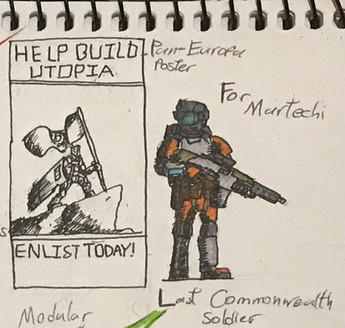 HELP BUILD
UTOPIA
Pan-Europa
Poster
For
Martechi
ENLIST TODAY!
Last Commonwealth
Soldier
Modular